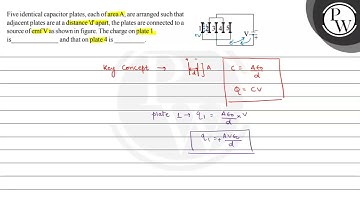 Five identical capacitor plates, each of area A, are arranged such that
adjacent plates are at a distance 'd' apart, the plates are connected to a
source of emf V as shown in figure. The charge on plate 1
is____________ and that on plate 4 is __________.
V
PW
Key Concept → A
d
C = Aε₀/d
Q = CV
plate 1 → q₁ = Aε₀/d × V
q₁ = + AVε₀/d